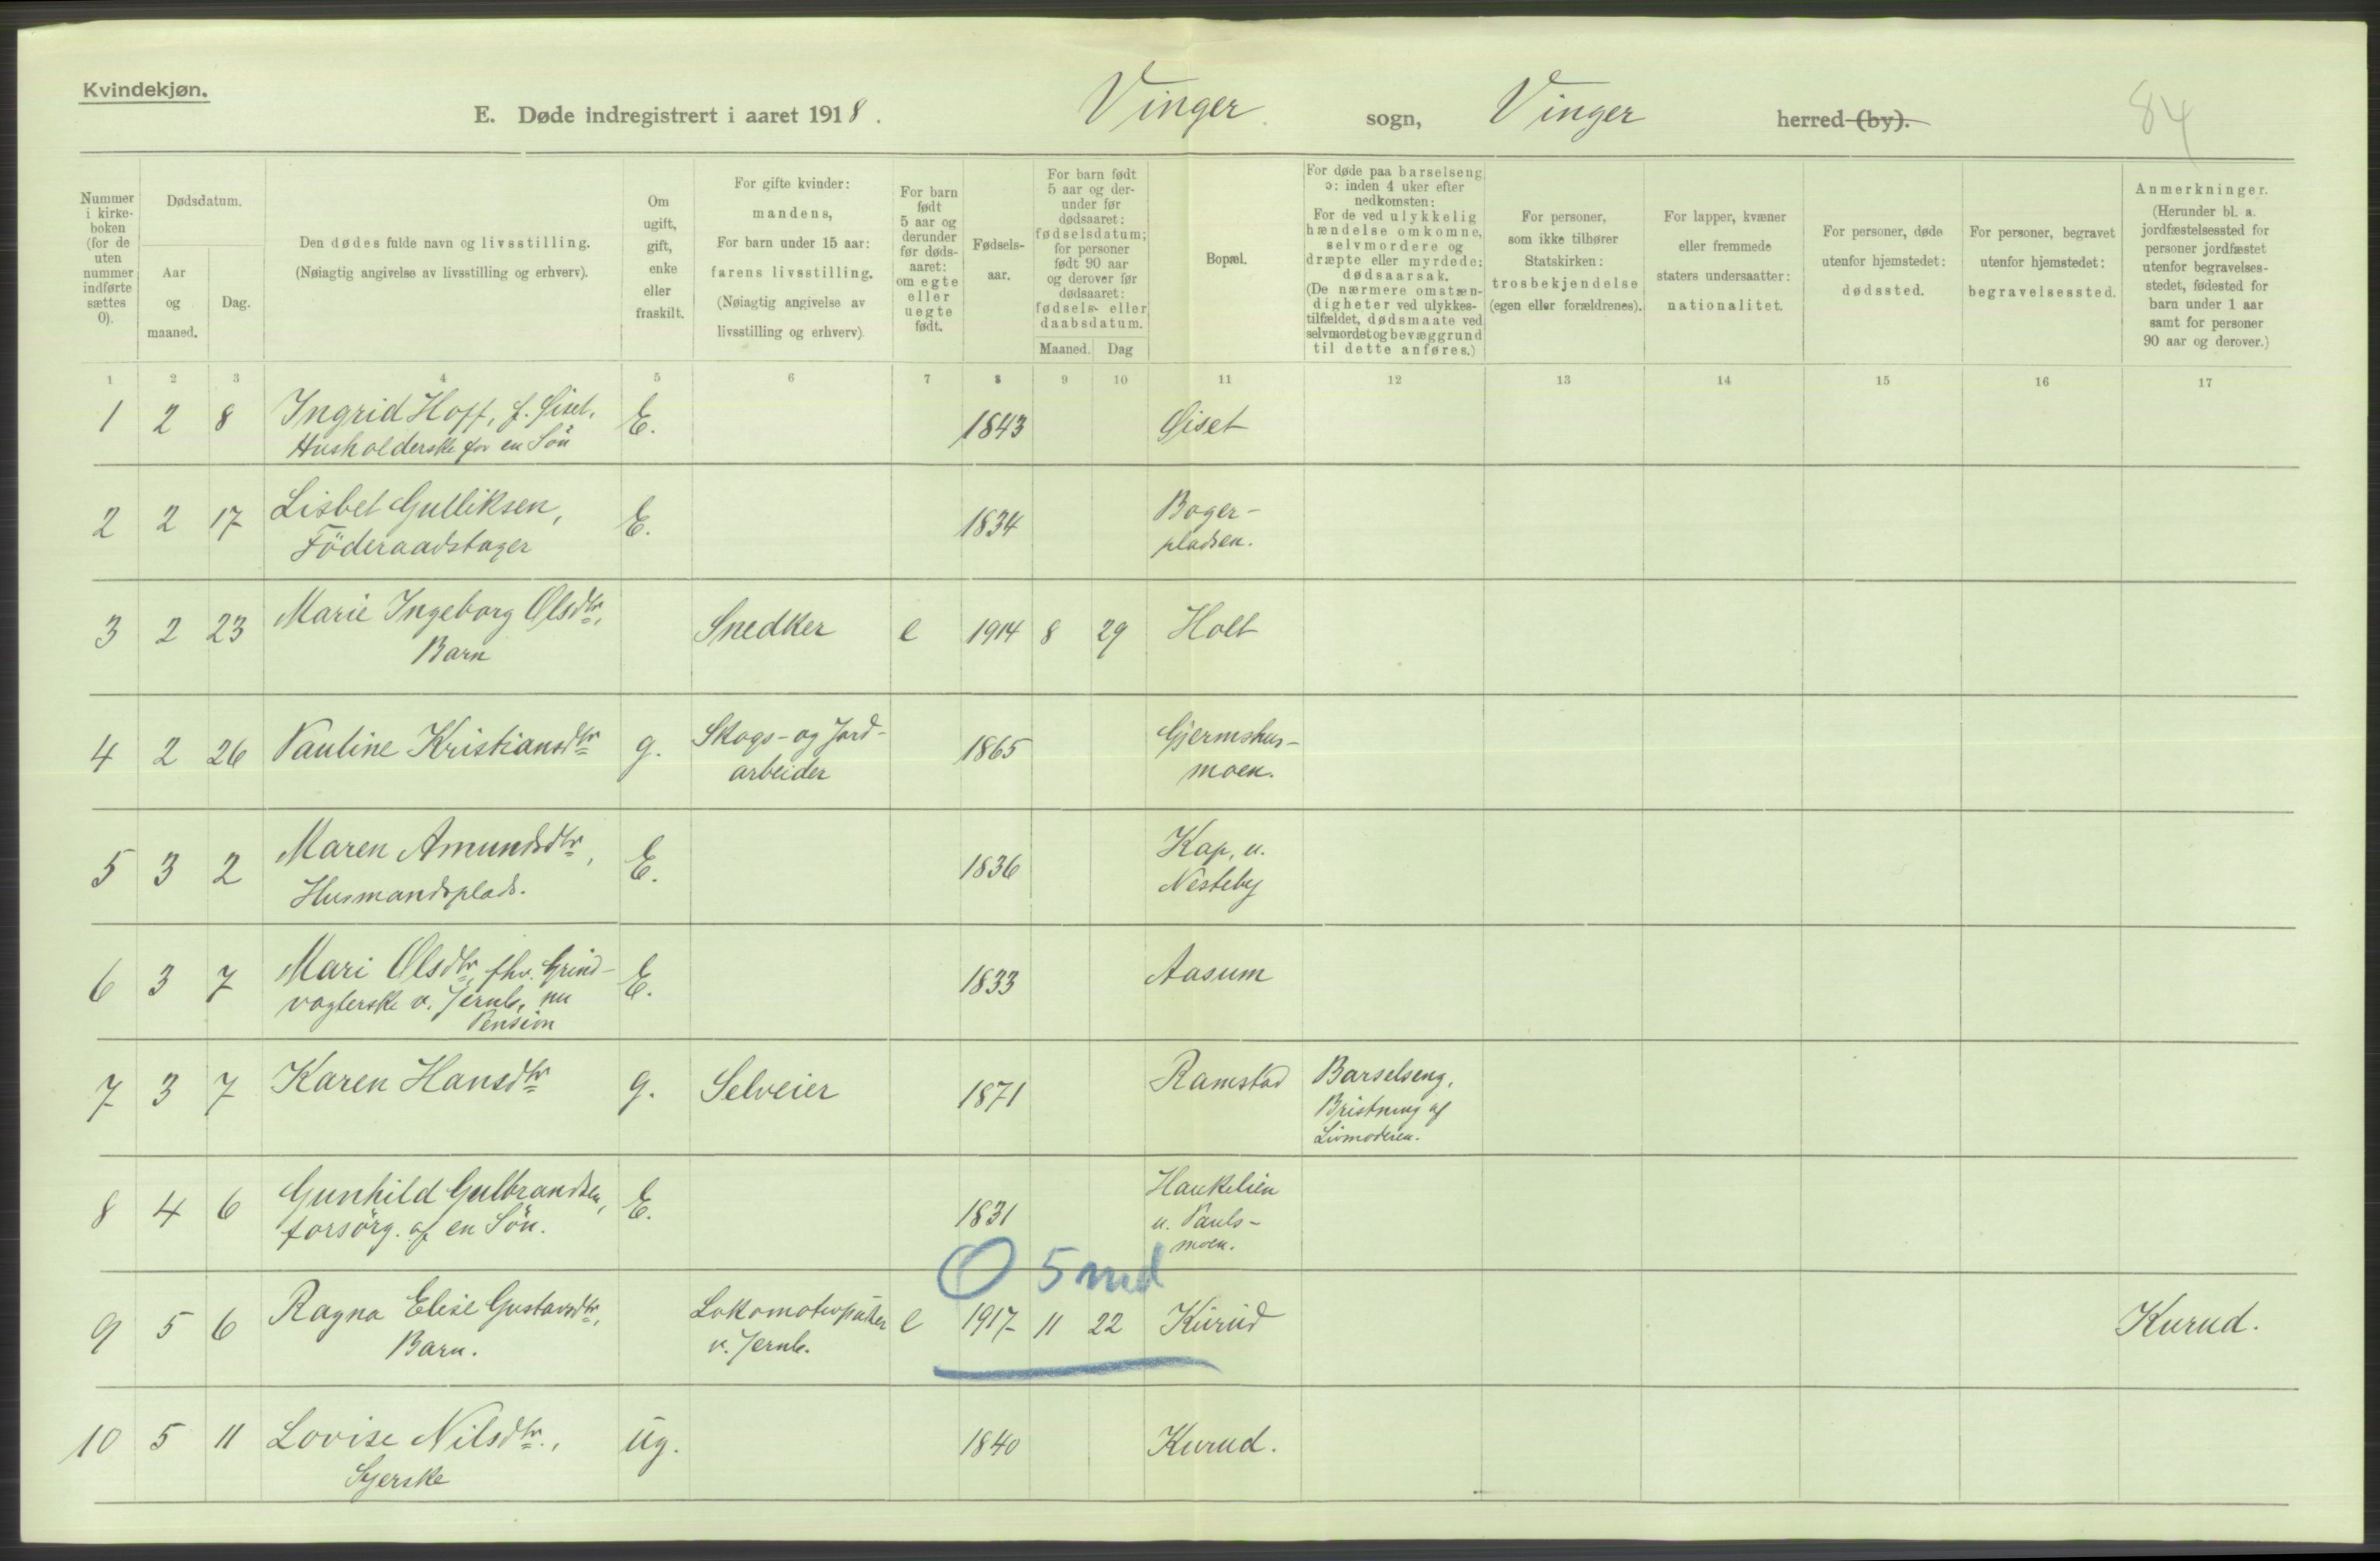 Kvindekjøn.
E. Døde indregistrert i aaret 1918. Vinger sogn, Vinger herred (by). 84
Nummer i kirke-boken (for de uten nummer indførte sættes 0).
Dødsdatum.
Aar og maaned.
Dag.
Den dødes fulde navn og livsstilling.
(Nøiagtig angivelse av livsstilling og erhverv).
Om ugift, gift, enke eller fraskilt.
For gifte kvinder:
mandens,
For barn under 15 aar:
farens livsstilling.
(Nøiagtig angivelse av
livsstilling og erhverv)
For barn født 5 aar og derunder før døds-aaret: om egte eller uegte født.
Fødsels-aar.
For barn født 5 aar og der-under før dødsaaret: fødselsdatum; for personer født 90 aar og derover før dødsaaret: fødsels- eller daabsdatum.
Maaned. Dag
Bopæl.
For døde paa barselseng ɔ: inden 4 uker efter nedkomsten:
For de ved ulykkelig hændelse omkomne, selvmordere og dræpte eller myrdede: dødsaarsak.
(De nærmere omstæn-digheter ved ulykkes-tilfældet, dødsmaate ved selvmordet og bevæggrund til dette anføres.)
For personer, som ikke tilhører Statskirken: trosbekjendelse (egen eller forældrenes).
For lapper, kvæner eller fremmede staters undersaatter: nationalitet.
For personer, døde utenfor hjemstedet: dødssted.
For personer, begravet utenfor hjemstedet: begravelsessted.
Anmerkninger.
(Herunder bl. a. jordfæstelsessted for personer jordfæstet utenfor begravelses-stedet, fødested for barn under 1 aar samt for personer 90 aar og derover.)
1 2 3 4 5 6 7 8 9 10 11 12 13 14 15 16 17
1 2 8 Ingrid Hoff, f. Giset, E. 1843 Giset
Husholderske for en Sön
2 2 17 Lisbet Gulliksen, E. 1834 Boger-
Föderaadstager pladsen.
3 2 23 Marie Ingeborg Olsdtr, Snedker e 1914 8 29 Holt
Barn
4 2 26 Pauline Kristiansdtr g. Skogs- og Jord- 1865 Gjermshus-
arbeider moen.
5 3 2 Maren Amundsdtr, E. 1836 Kap, u.
Husmandsplads. Nesteby
6 3 7 Mari Olsdtr, fhv. Grind- E. 1833 Aasum
vogterske v. Jernb., nu
Pension
7 3 7 Karen Hansdtr g. Selveier 1871 Ramstad Barselseng,
Bristning af
Livmoderen.
8 4 6 Gunhild Gulbrandsen, E. 1831 Haukelien
forsörg. af en Sön. u. Pauls-
moen.
0 5 md
9 5 6 Ragna Elise Gustavsdtr, Lokomotivpudser e 1917 11 22 Kurud Kurud.
Barn. v. Jernb.
10 5 11 Lovise Nilsdtr., ug. 1840 Kurud.
Syerske